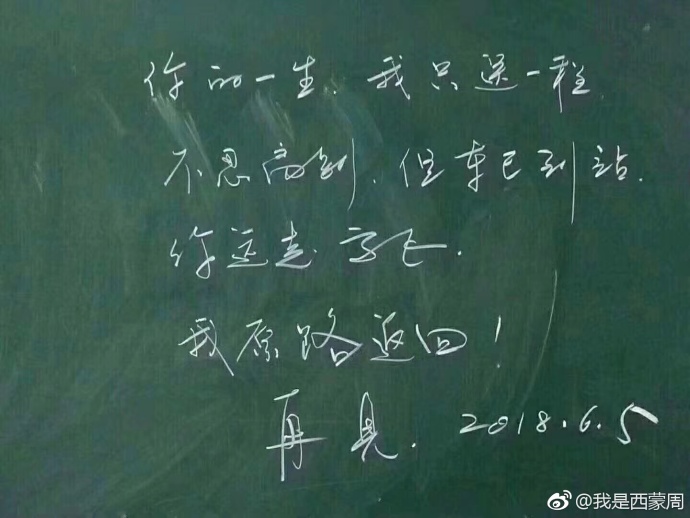 你的一生,我只送一程.
不忍离别,但车已到站.
你远走高飞.
我原路返回!
再见. 2018.6.5
@我是西蒙周